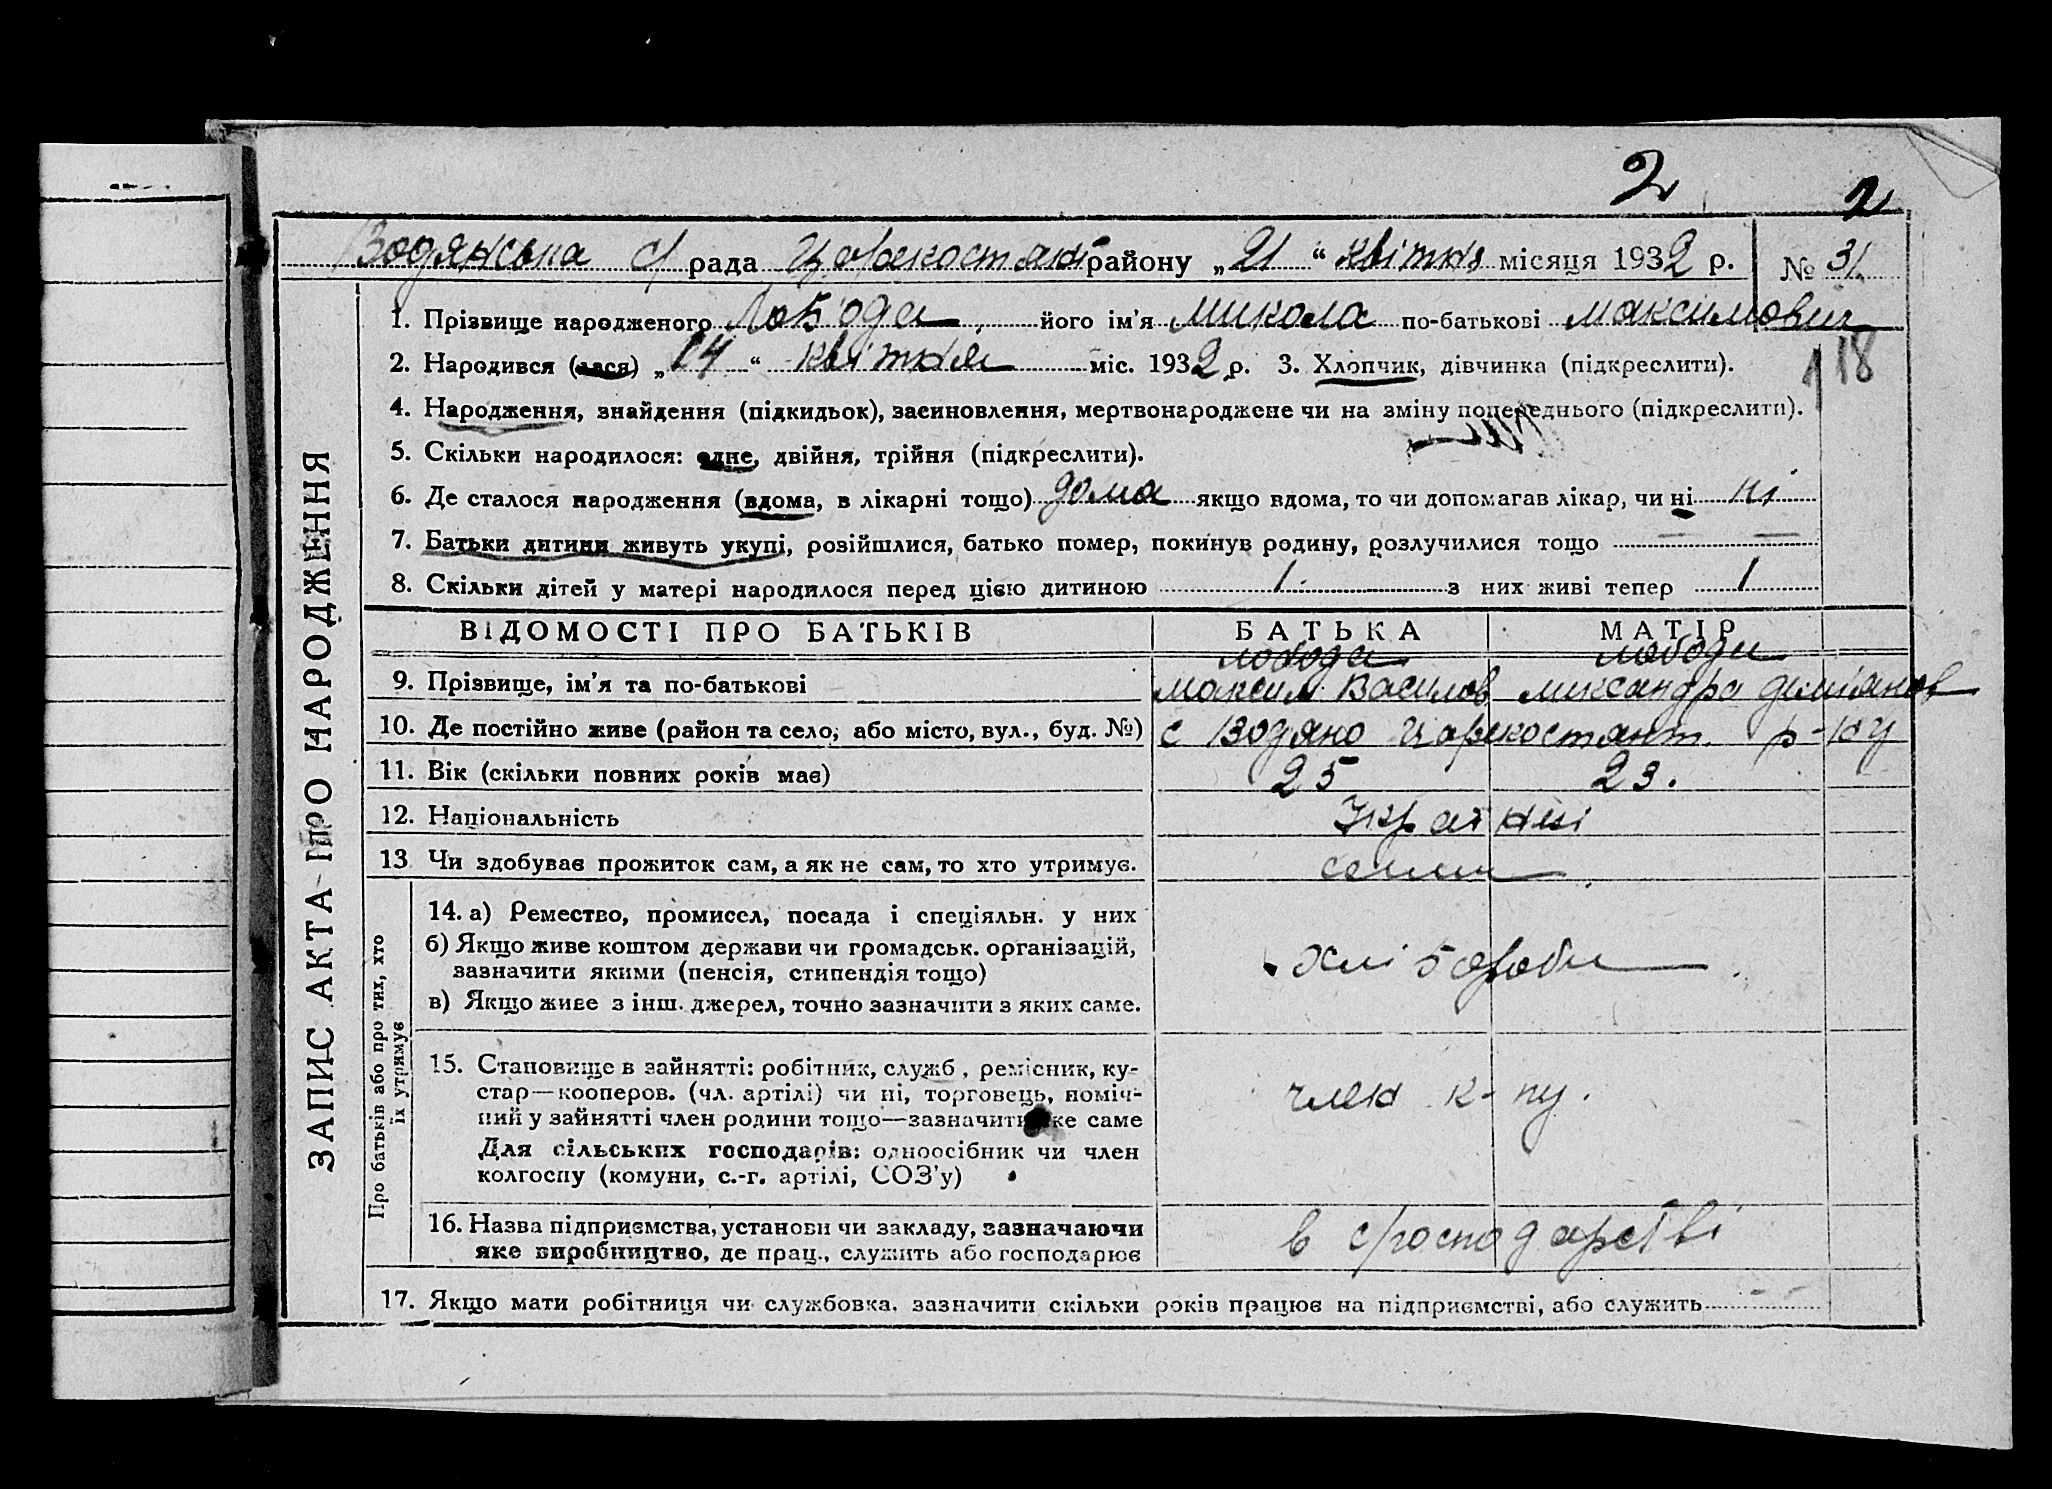 2
2
Водянська с/ рада Царекостянт району „21“ квітня місяця 1932 р. № 31
1. Прізвище народженого Лобода, його ім’я Микола по-батькові Максимович
2. Народився (лася) „14“ квітня міс. 1932 р. 3. Хлопчик, дівчинка (підкреслити).
118
4. Народження, знайдення (підкидьок), засиновлення, мертвонароджене чи на зміну попереднього (підкреслити).
5. Скільки народилося: одне, двійня, трійня (підкреслити).
6. Де сталося народження (вдома, в лікарні тощо) дома якщо вдома, то чи допомагав лікар, чи ні ні
7. Батьки дитини живуть укупі, розійшлися, батько помер, покинув родину, розлучилися тощо —
8. Скільки дітей у матері народилося перед цією дитиною 1 з них живі тепер 1
ЗАПИС АКТА ПРО НАРОДЖЕННЯ
ВІДОМОСТІ ПРО БАТЬКІВ БАТЬКА МАТІР
Лобода Лобода
9. Прізвище, ім’я та по-батькові Максим Василов Олександра Деміянов
10. Де постійно живе (район та село, або місто, вул., буд. №) с Водяно Царекостянт. р-ну
11. Вік (скільки повних років має) 25 23.
12. Національність Українці
13 Чи здобуває прожиток сам, а як не сам, то хто утримує. сами
Про батьків або про тих, хто їх утримує
14. а) Ремество, промисел, посада і спеціяльн. у них
б) Якщо живе коштом держави чи громадськ. організацій,
зазначити якими (пенсія, стипендія тощо) Хлібороби
в) Якщо живе з інш. джерел, точно зазначити з яких саме.
15. Становище в зайнятті: робітник, служб., ремісник, ку-
стар—кооперов. (чл. артілі) чи ні, торговець, поміч- член к-пу.
ний у зайнятті член родини тощо—зазначити яке саме
Для сільських господарів: одноосібник чи член
колгоспу (комуни, с.-г. артілі, СОЗ’у)
16. Назва підприємства, установи чи закладу, зазначаючи
яке виробництво, де прац., служить або господарює в с/господарстві
17. Якщо мати робітниця чи службовка, зазначити скільки років працює на підприємстві, або служить